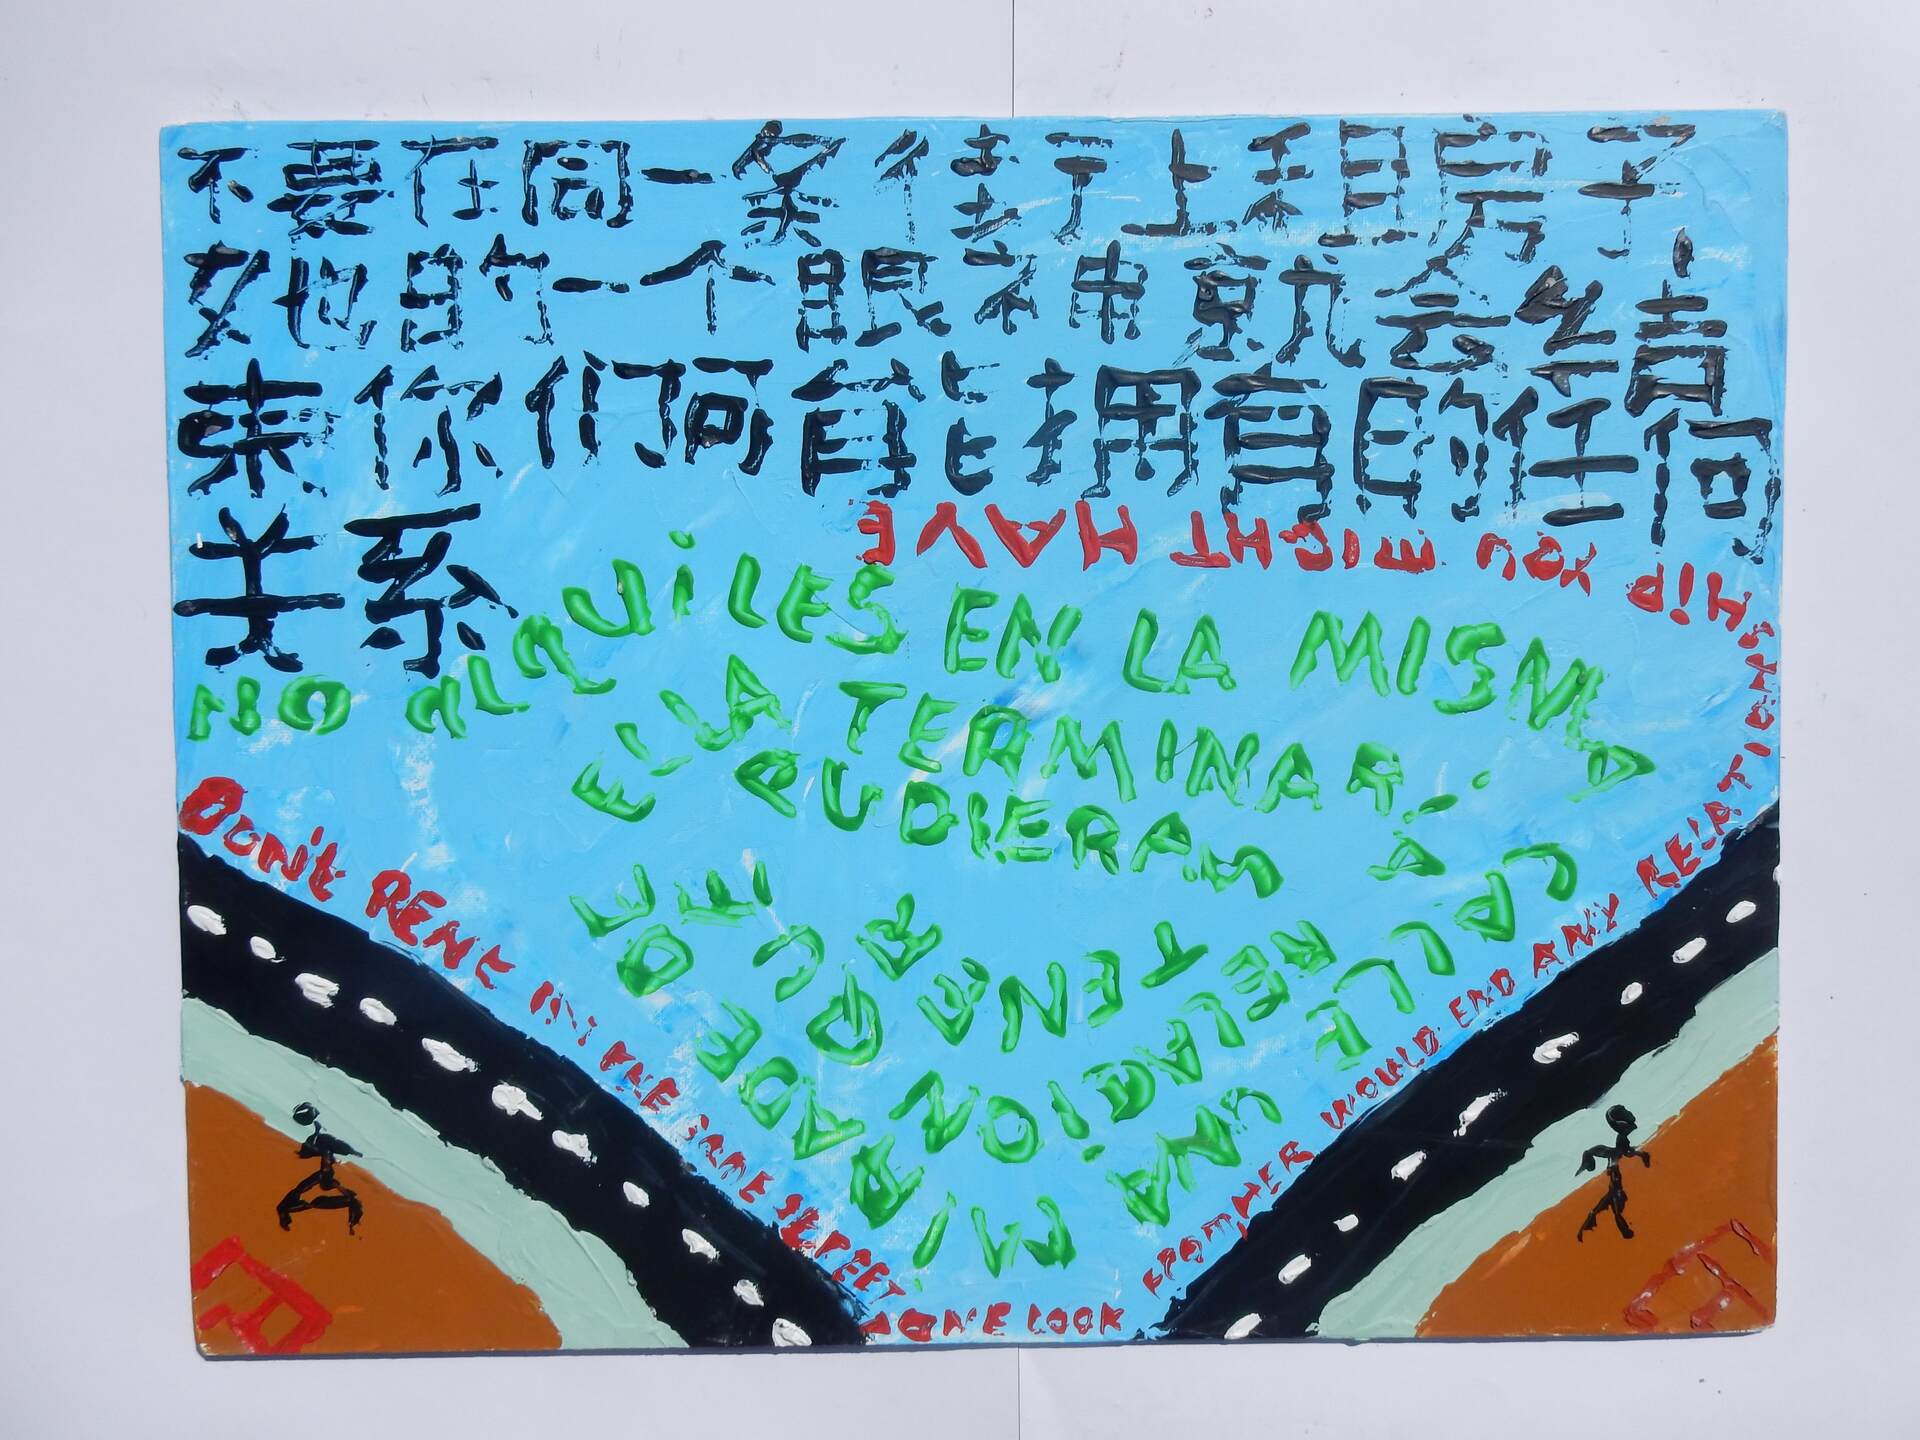 不要在同一条街上租房子
她的一个眼神就会结
束你们可能拥有的任何
关系
NO ALQUILES EN LA MISMA
CALLE UNA
MIRADE DE
ELLA TERMINARÍA
RELACION QUE
PUDIERAS TENER
DON'T RENT IN THE SAME STREET
ONE LOOK
FROM HER WOULD END ANY RELATIONSHIP YOU MIGHT HAVE